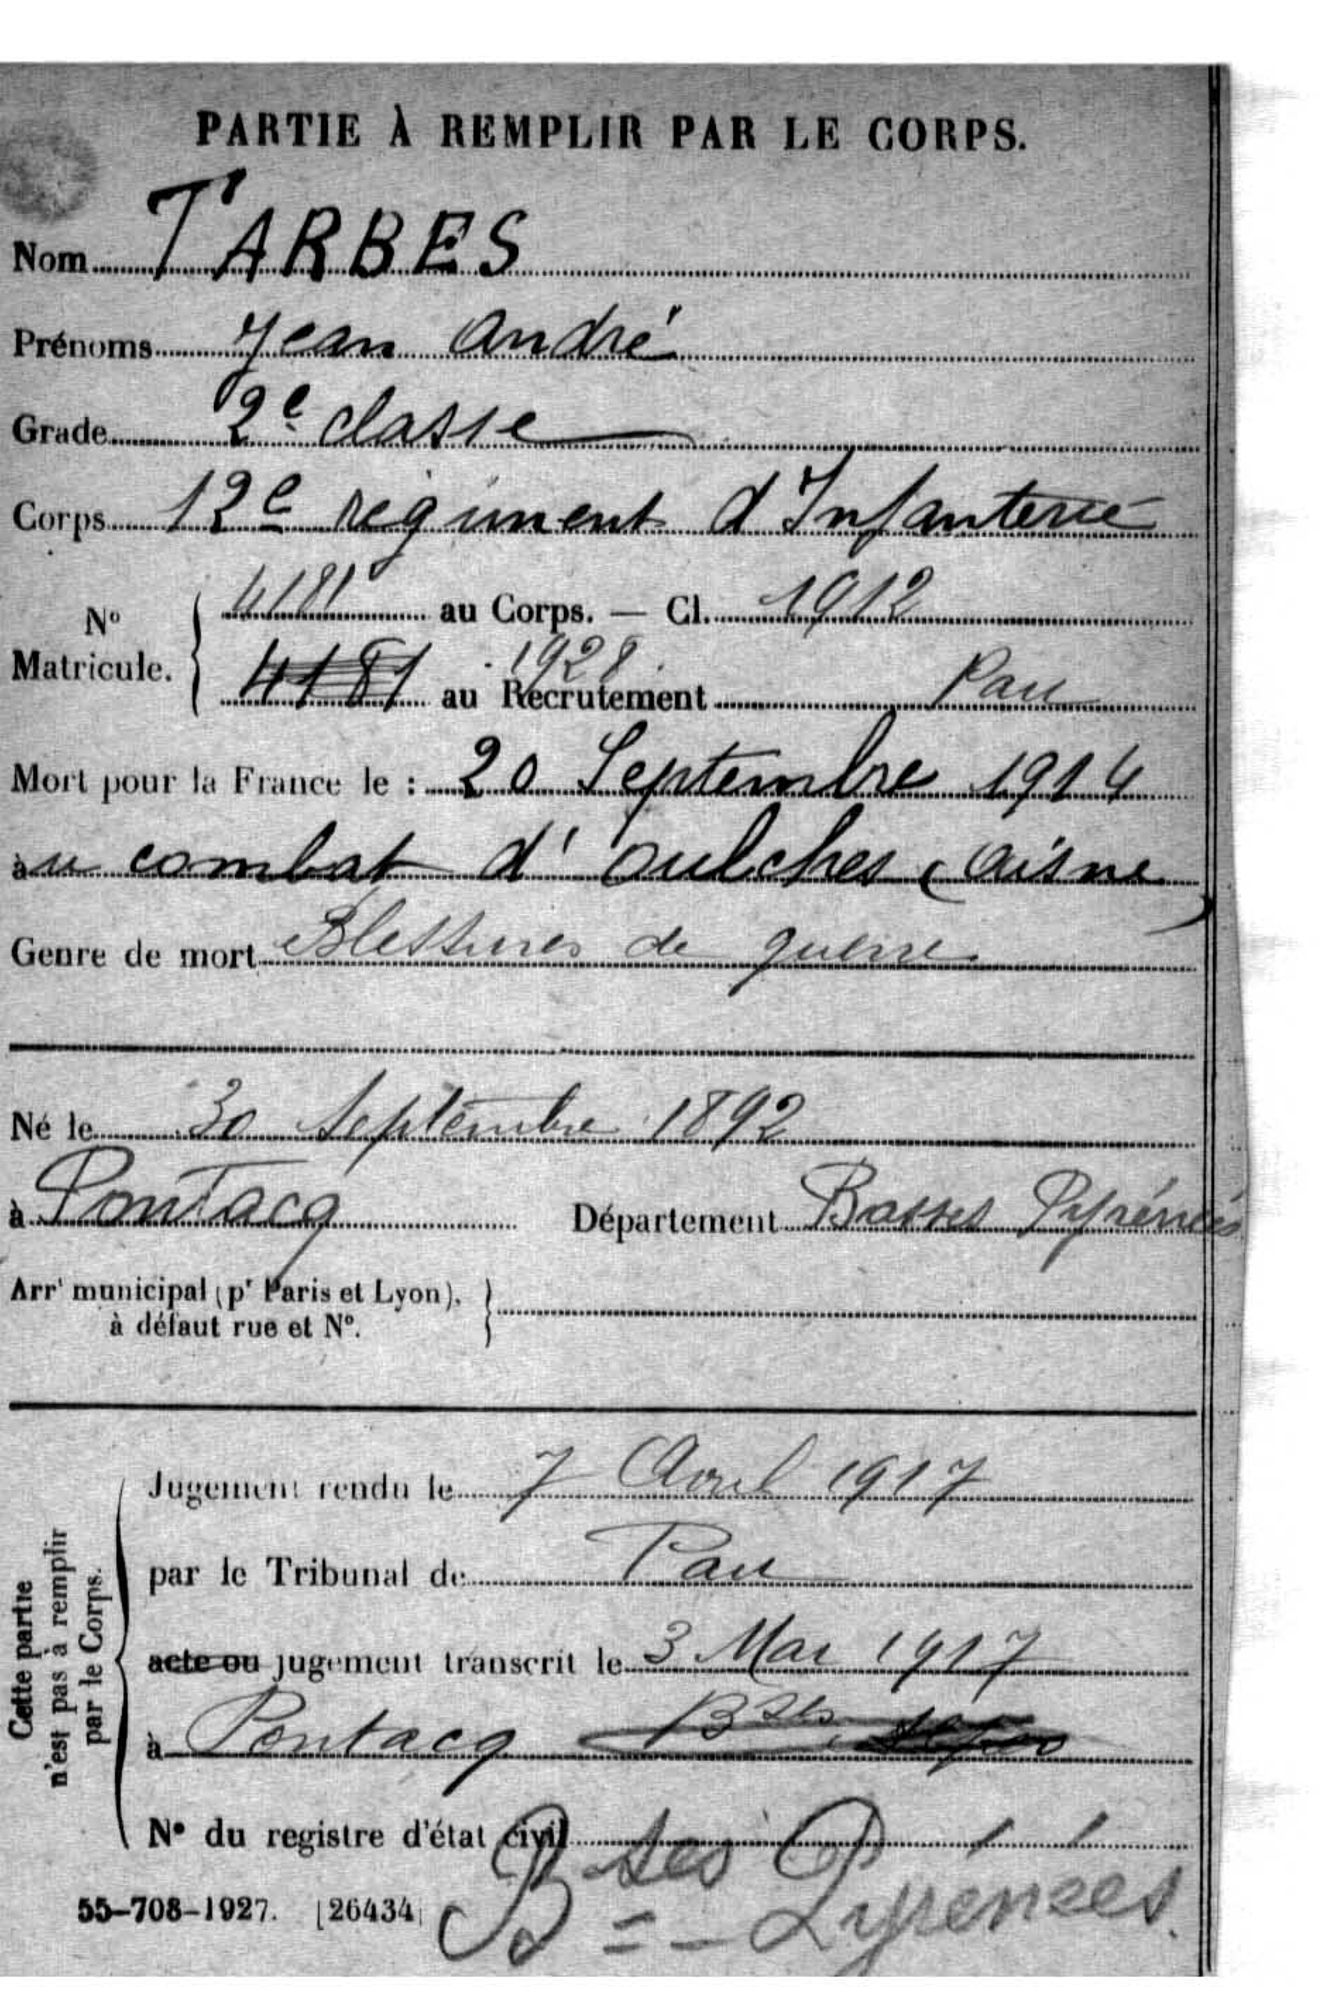 PARTIE À REMPLIR PAR LE CORPS.
Nom TARBES
Prénoms Jean André
Grade 2e classe
Corps 12e régiment d'Infanterie
No Matricule. 4181 au Corps. — Cl. 1912
4181 1928 au Recrutement Pau
Mort pour la France le : 20 Septembre 1914
au combat d'Oulches (Aisne)
Genre de mort Blessures de guerre
Né le 30 Septembre 1892
à Pontacq Département Basses Pyrénées
Arrt municipal (pr Paris et Lyon),
à défaut rue et No.
Cette partie
n'est pas à remplir
par le Corps.
Jugement rendu le 7 Avril 1917
par le Tribunal de Pau
acte ou jugement transcrit le 3 Mai 1917
à Pontacq Bses
No du registre d'état civil
Bses Pyrénées.
55-708-1927. [26434]